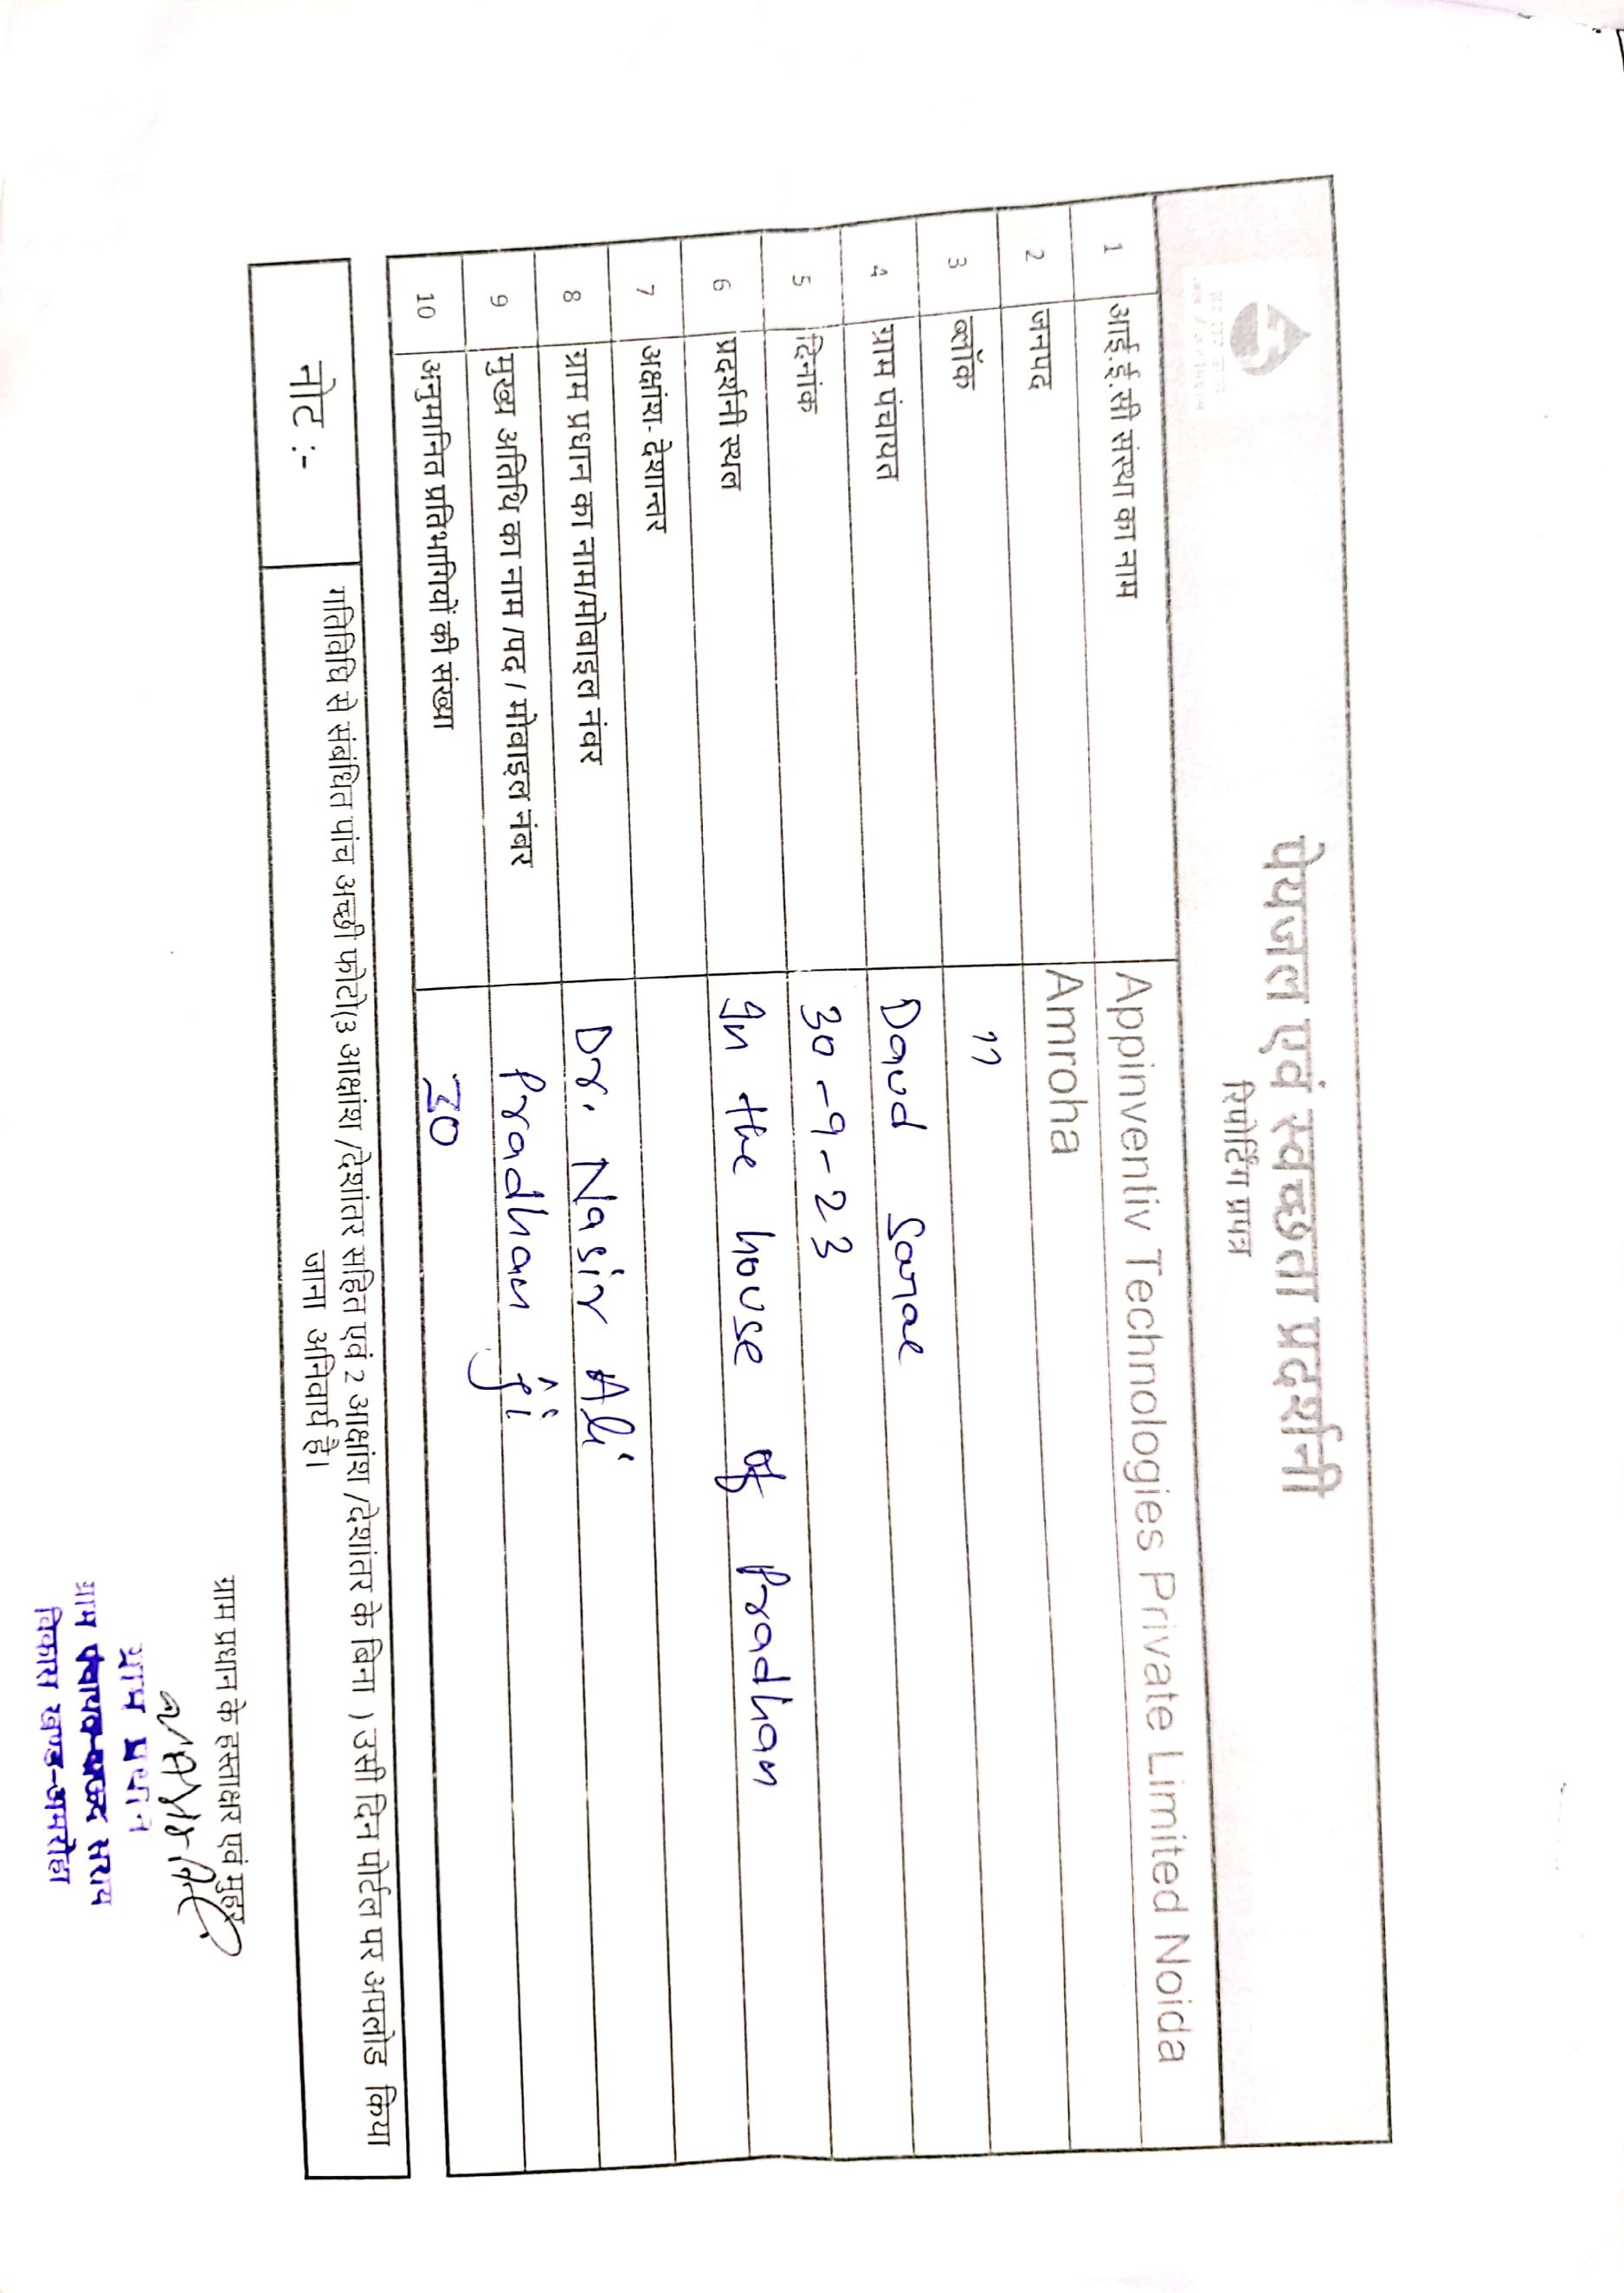 पेयजल एवं स्वच्छता प्रदर्शनी
रिपोर्टिंग प्रपत्र
1 आई.ई.सी संस्था का नाम Appinventiv Technologies Private Limited Noida
2 जनपद Amroha
3 ब्लॉक "
4 ग्राम पंचायत Daud Sarae
5 दिनांक 30-9-23
6 प्रदर्शनी स्थल In the house of Pradhan
7 अक्षांश- देशान्तर
8 ग्राम प्रधान का नाम/मोबाइल नंबर Dr. Nasir Ali
9 मुख्य अतिथि का नाम /पद / मोबाइल नंबर Pradhan ji
10 अनुमानित प्रतिभागियों की संख्या 30
नोट :- गतिविधि से संबंधित पांच अच्छी फोटो(3 आक्षांश /देशांतर सहित एवं 2 आक्षांश /देशांतर के बिना ) उसी दिन पोर्टल पर अपलोड किया
जाना अनिवार्य है।
ग्राम प्रधान के हस्ताक्षर एवं मुहर
ग्राम प्रधान
ग्राम पंचायत- सराय
विकास खण्ड-अमरोहा